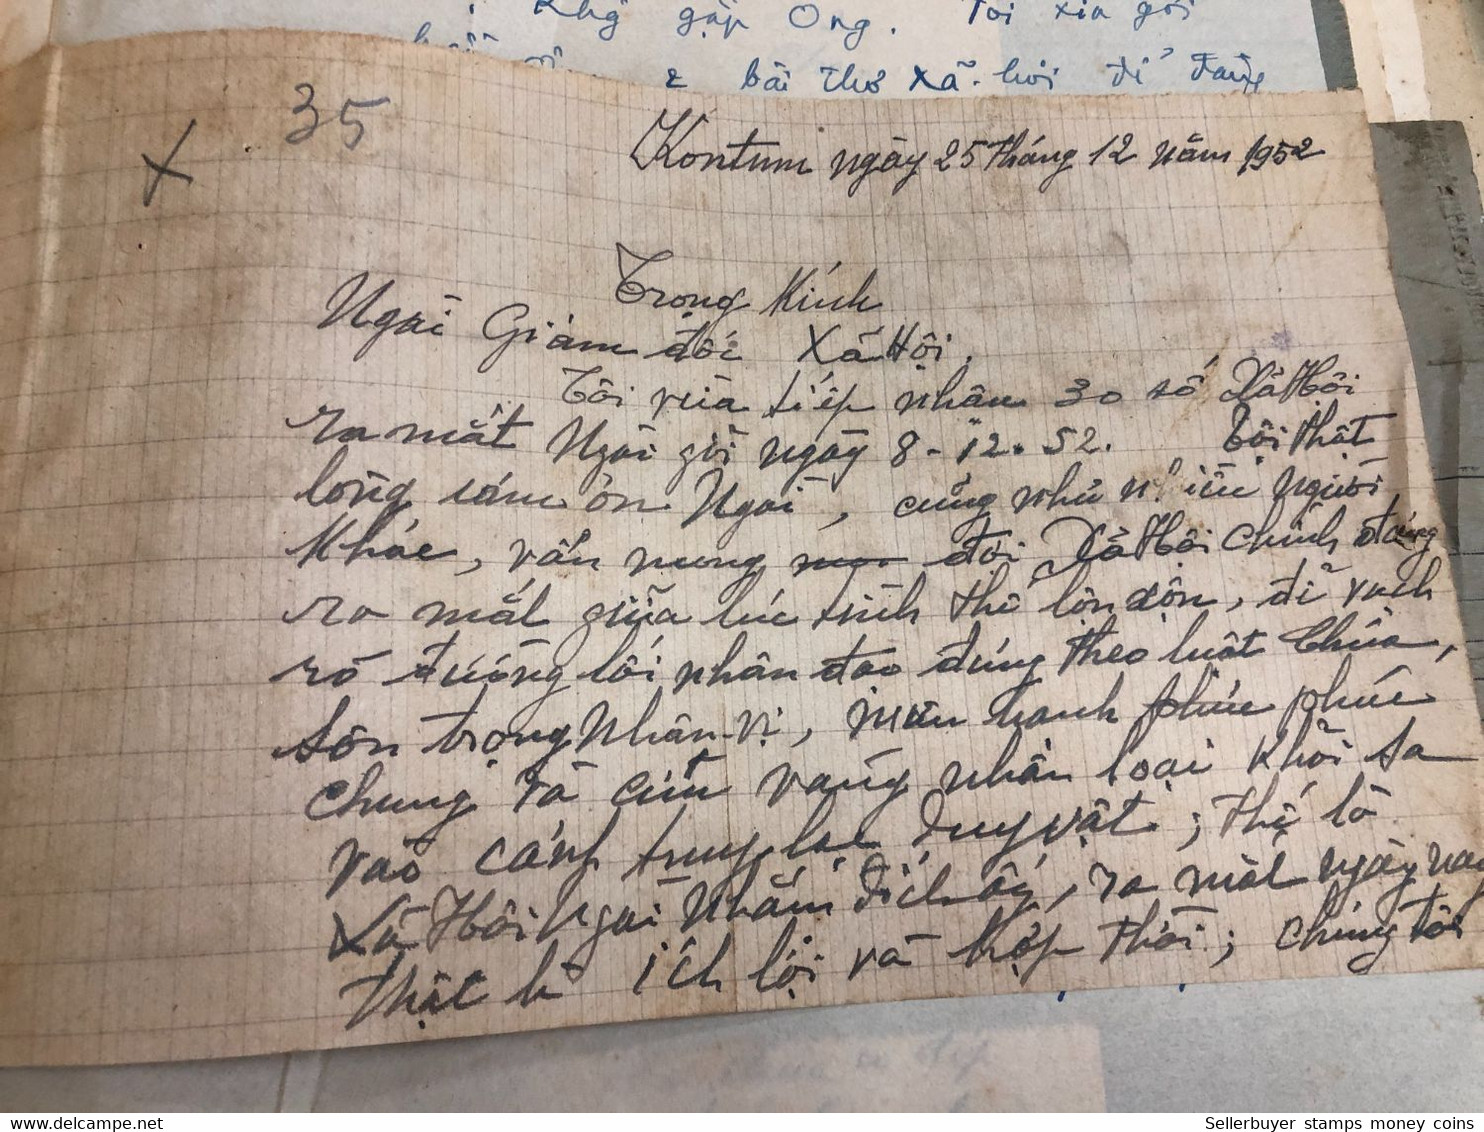 Khg gặp Ông. Tôi xin gởi
2 bài thơ xã-hội để đăng
35
X
Kontum ngày 25 tháng 12 năm 1952
Trọng Kính
Ngài Giám đốc Xã Hội,
Tôi vừa tiếp nhận 30 số Xã Hội
ra mắt Ngài gởi ngày 8-12-52. Tôi thật
lòng cám ơn Ngài, cũng như nhiều người
khác, vẫn mong đợi Xã Hội chính đáng
ra mắt giữa lúc tình thế lộn xộn, để vạch
rõ đường lối nhân đạo đúng theo luật Chúa,
tôn trọng Nhân-vị, mưu hạnh phúc
chung và cứu vãng nhân loại khỏi sa
vào cảnh trụy lạc duy vật; thế là
Xã Hội Ngài nhắm đích ấy, ra mắt ngày nay
thật là ích lợi và hợp thời; chúng tôi
Sellerbuyer stamps money coins